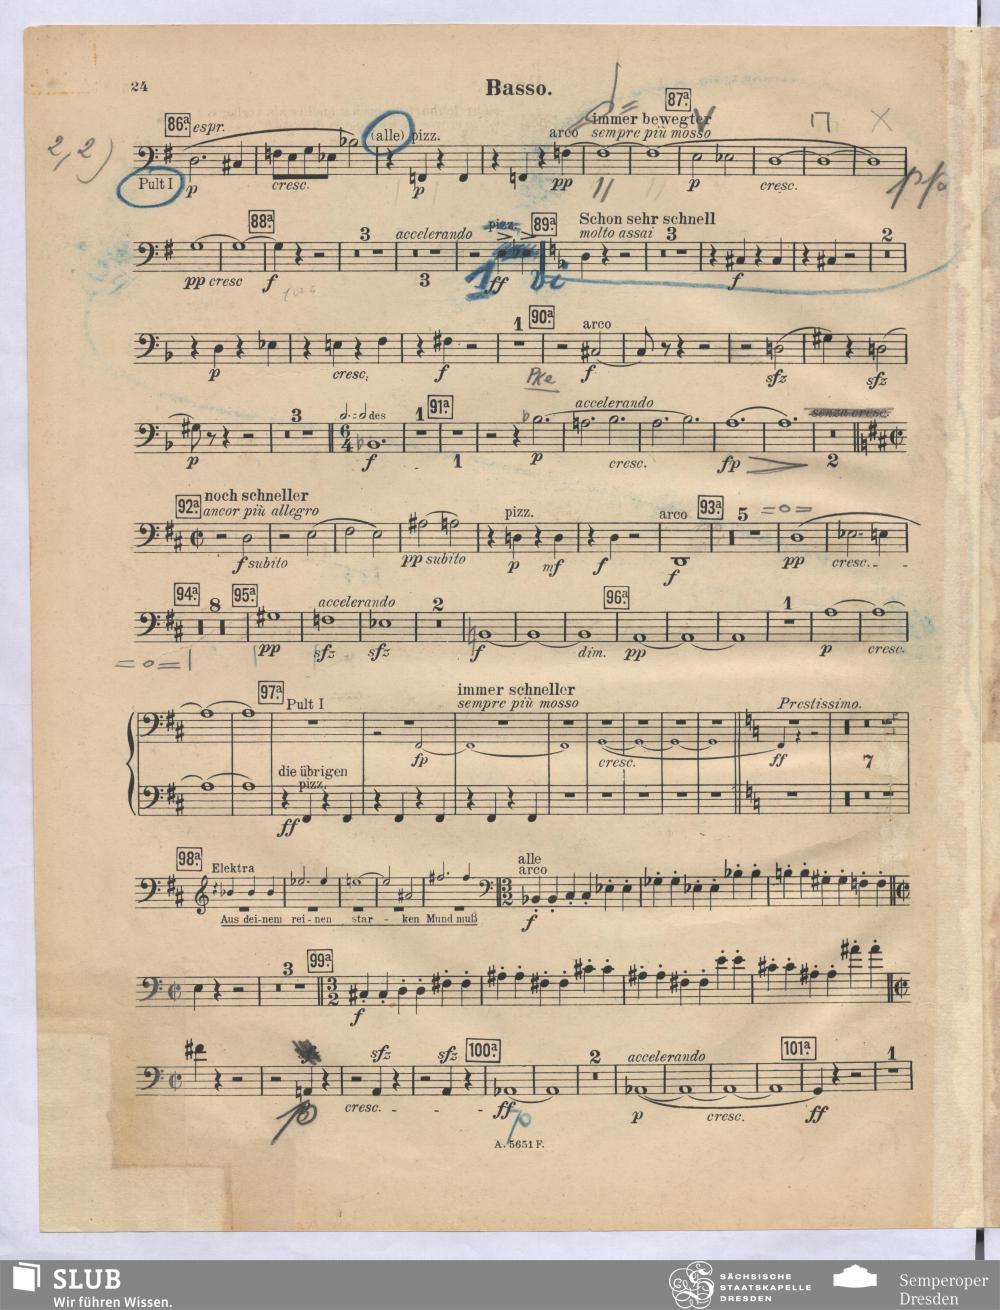 24
Basso.
2, 2)
86ª. espr. (alle) pizz. arco immer bewegter 87ª.
sempre più mosso
Pult I p cresc. p pp p cresc. ppp
88ª. 3 accelerando pizz. 89ª. Schon sehr schnell
molto assai 3 2
pp cresc f 3 1 ff f
1 90ª. arco
p cresc. f f sfz sfz
Pke
3 des 1 91ª. accelerando senza cresc.
6 4
p f 1 p cresc. fp 2
92ª. noch schneller
ancor più allegro pizz. arco 93ª. 5
f subito pp subito p mf f f pp cresc.
94ª. 8 95ª. accelerando 2 96ª. 1
pp sfz sfz f dim. pp p cresc.
97ª. Pult I immer schneller
sempre più mosso Prestissimo.
fp cresc. ff 7
die übrigen
pizz.
ff
98ª. Elektra alle
arco
3 2
Aus dei-nem rei-nen star - ken Mund muß
f
3 99ª.
3 2
f
sfz sfz 100ª. 2 accelerando 101ª. 1
p cresc. ff p p cresc. ff
A. 5651 F.
SLUB
Wir führen Wissen.
SÄCHSISCHE
STAATSKAPELLE
DRESDEN
Semperoper
Dresden